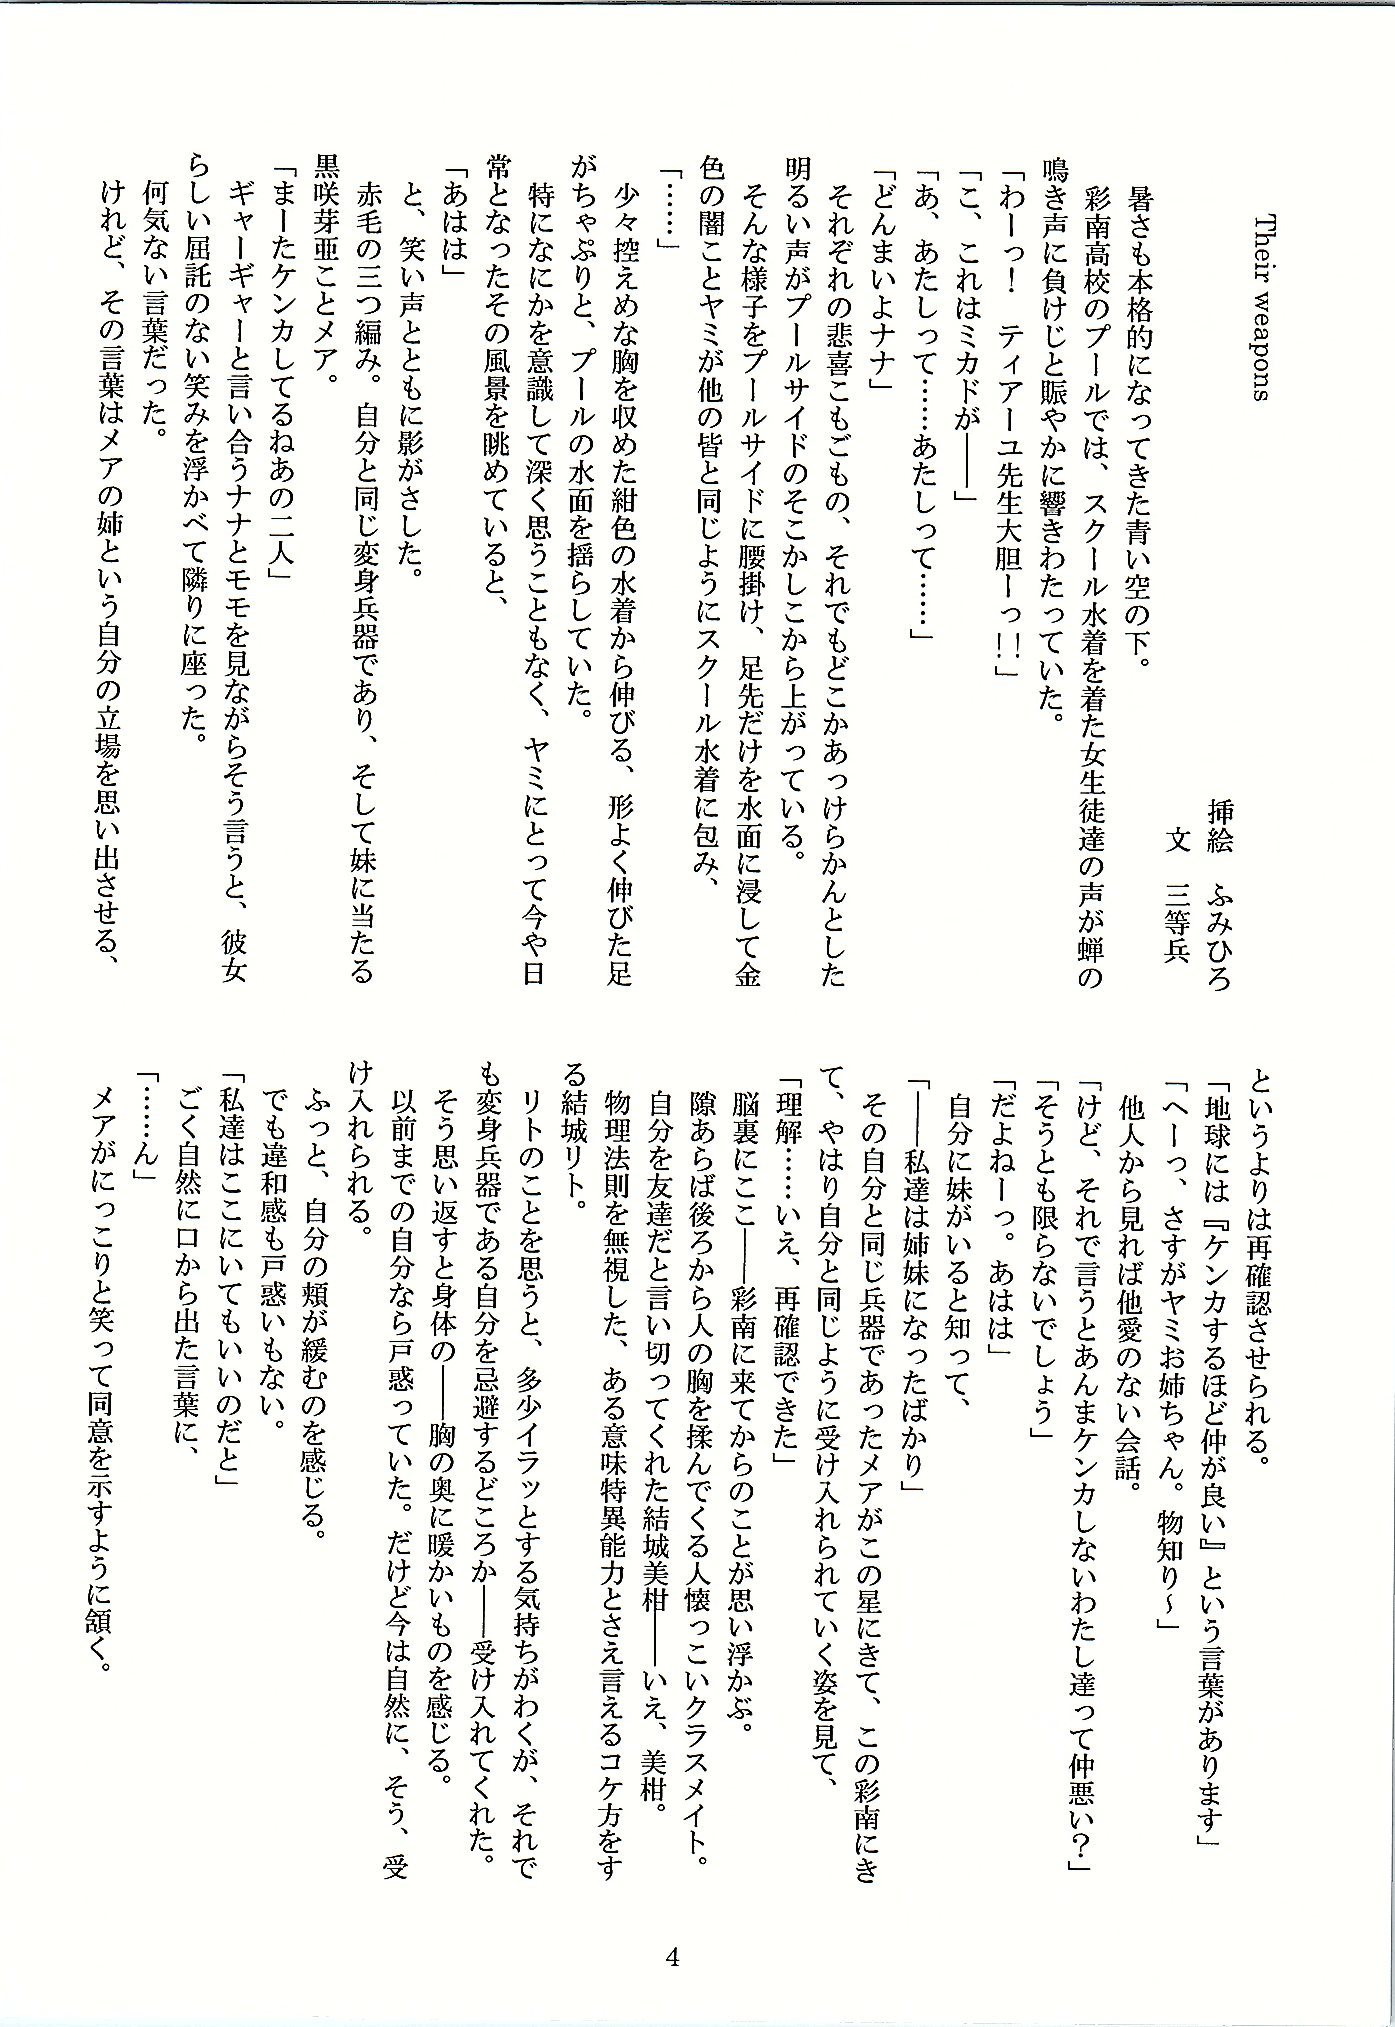 Their weapons
挿絵　ふみひろ
文　三等兵
　暑さも本格的になってきた青い空の下。
　彩南高校のプールでは、スクール水着を着た女生徒達の声が蝉の
鳴き声に負けじと賑やかに響きわたっていた。
「わーっ！　ティアーユ先生大胆ーっ!!」
「こ、これはミカドが――」
「あ、あたしって……あたしって……」
「どんまいよナナ」
　それぞれの悲喜こもごもの、それでもどこかあっけらかんとした
明るい声がプールサイドのそこかしこから上がっている。
　そんな様子をプールサイドに腰掛け、足先だけを水面に浸して金
色の闇ことヤミが他の皆と同じようにスクール水着に包み、
「……」
　少々控えめな胸を収めた紺色の水着から伸びる、形よく伸びた足
がちゃぷりと、プールの水面を揺らしていた。
　特になにかを意識して深く思うこともなく、ヤミにとって今や日
常となったその風景を眺めていると、
「あはは」
　と、笑い声とともに影がさした。
　赤毛の三つ編み。自分と同じ変身兵器であり、そして妹に当たる
黒咲芽亜ことメア。
「まーたケンカしてるねあの二人」
　ギャーギャーと言い合うナナとモモを見ながらそう言うと、彼女
らしい屈託のない笑みを浮かべて隣りに座った。
　何気ない言葉だった。
　けれど、その言葉はメアの姉という自分の立場を思い出させる、
というよりは再確認させられる。
「地球には『ケンカするほど仲が良い』という言葉があります」
「へーっ、さすがヤミお姉ちゃん。物知り～」
　他人から見れば他愛のない会話。
「けど、それで言うとあんまケンカしないわたし達って仲悪い？」
「そうとも限らないでしょう」
「だよねーっ。あはは」
　自分に妹がいると知って、
「――私達は姉妹になったばかり」
　その自分と同じ兵器であったメアがこの星にきて、この彩南にき
て、やはり自分と同じように受け入れられていく姿を見て、
「理解……いえ、再確認できた」
　脳裏にここ――彩南に来てからのことが思い浮かぶ。
　隙あらば後ろから人の胸を揉んでくる人懐っこいクラスメイト。
　自分を友達だと言い切ってくれた結城美柑――いえ、美柑。
　物理法則を無視した、ある意味特異能力とさえ言えるコケ方をす
る結城リト。
　リトのことを思うと、多少イラッとする気持ちがわくが、それで
も変身兵器である自分を忌避するどころか――受け入れてくれた。
　そう思い返すと身体の――胸の奥に暖かいものを感じる。
　以前までの自分なら戸惑っていた。だけど今は自然に、そう、受
け入れられる。
　ふっと、自分の頬が緩むのを感じる。
　でも違和感も戸惑いもない。
「私達はここにいてもいいのだと」
　ごく自然に口から出た言葉に、
「……ん」
　メアがにっこりと笑って同意を示すように頷く。
4